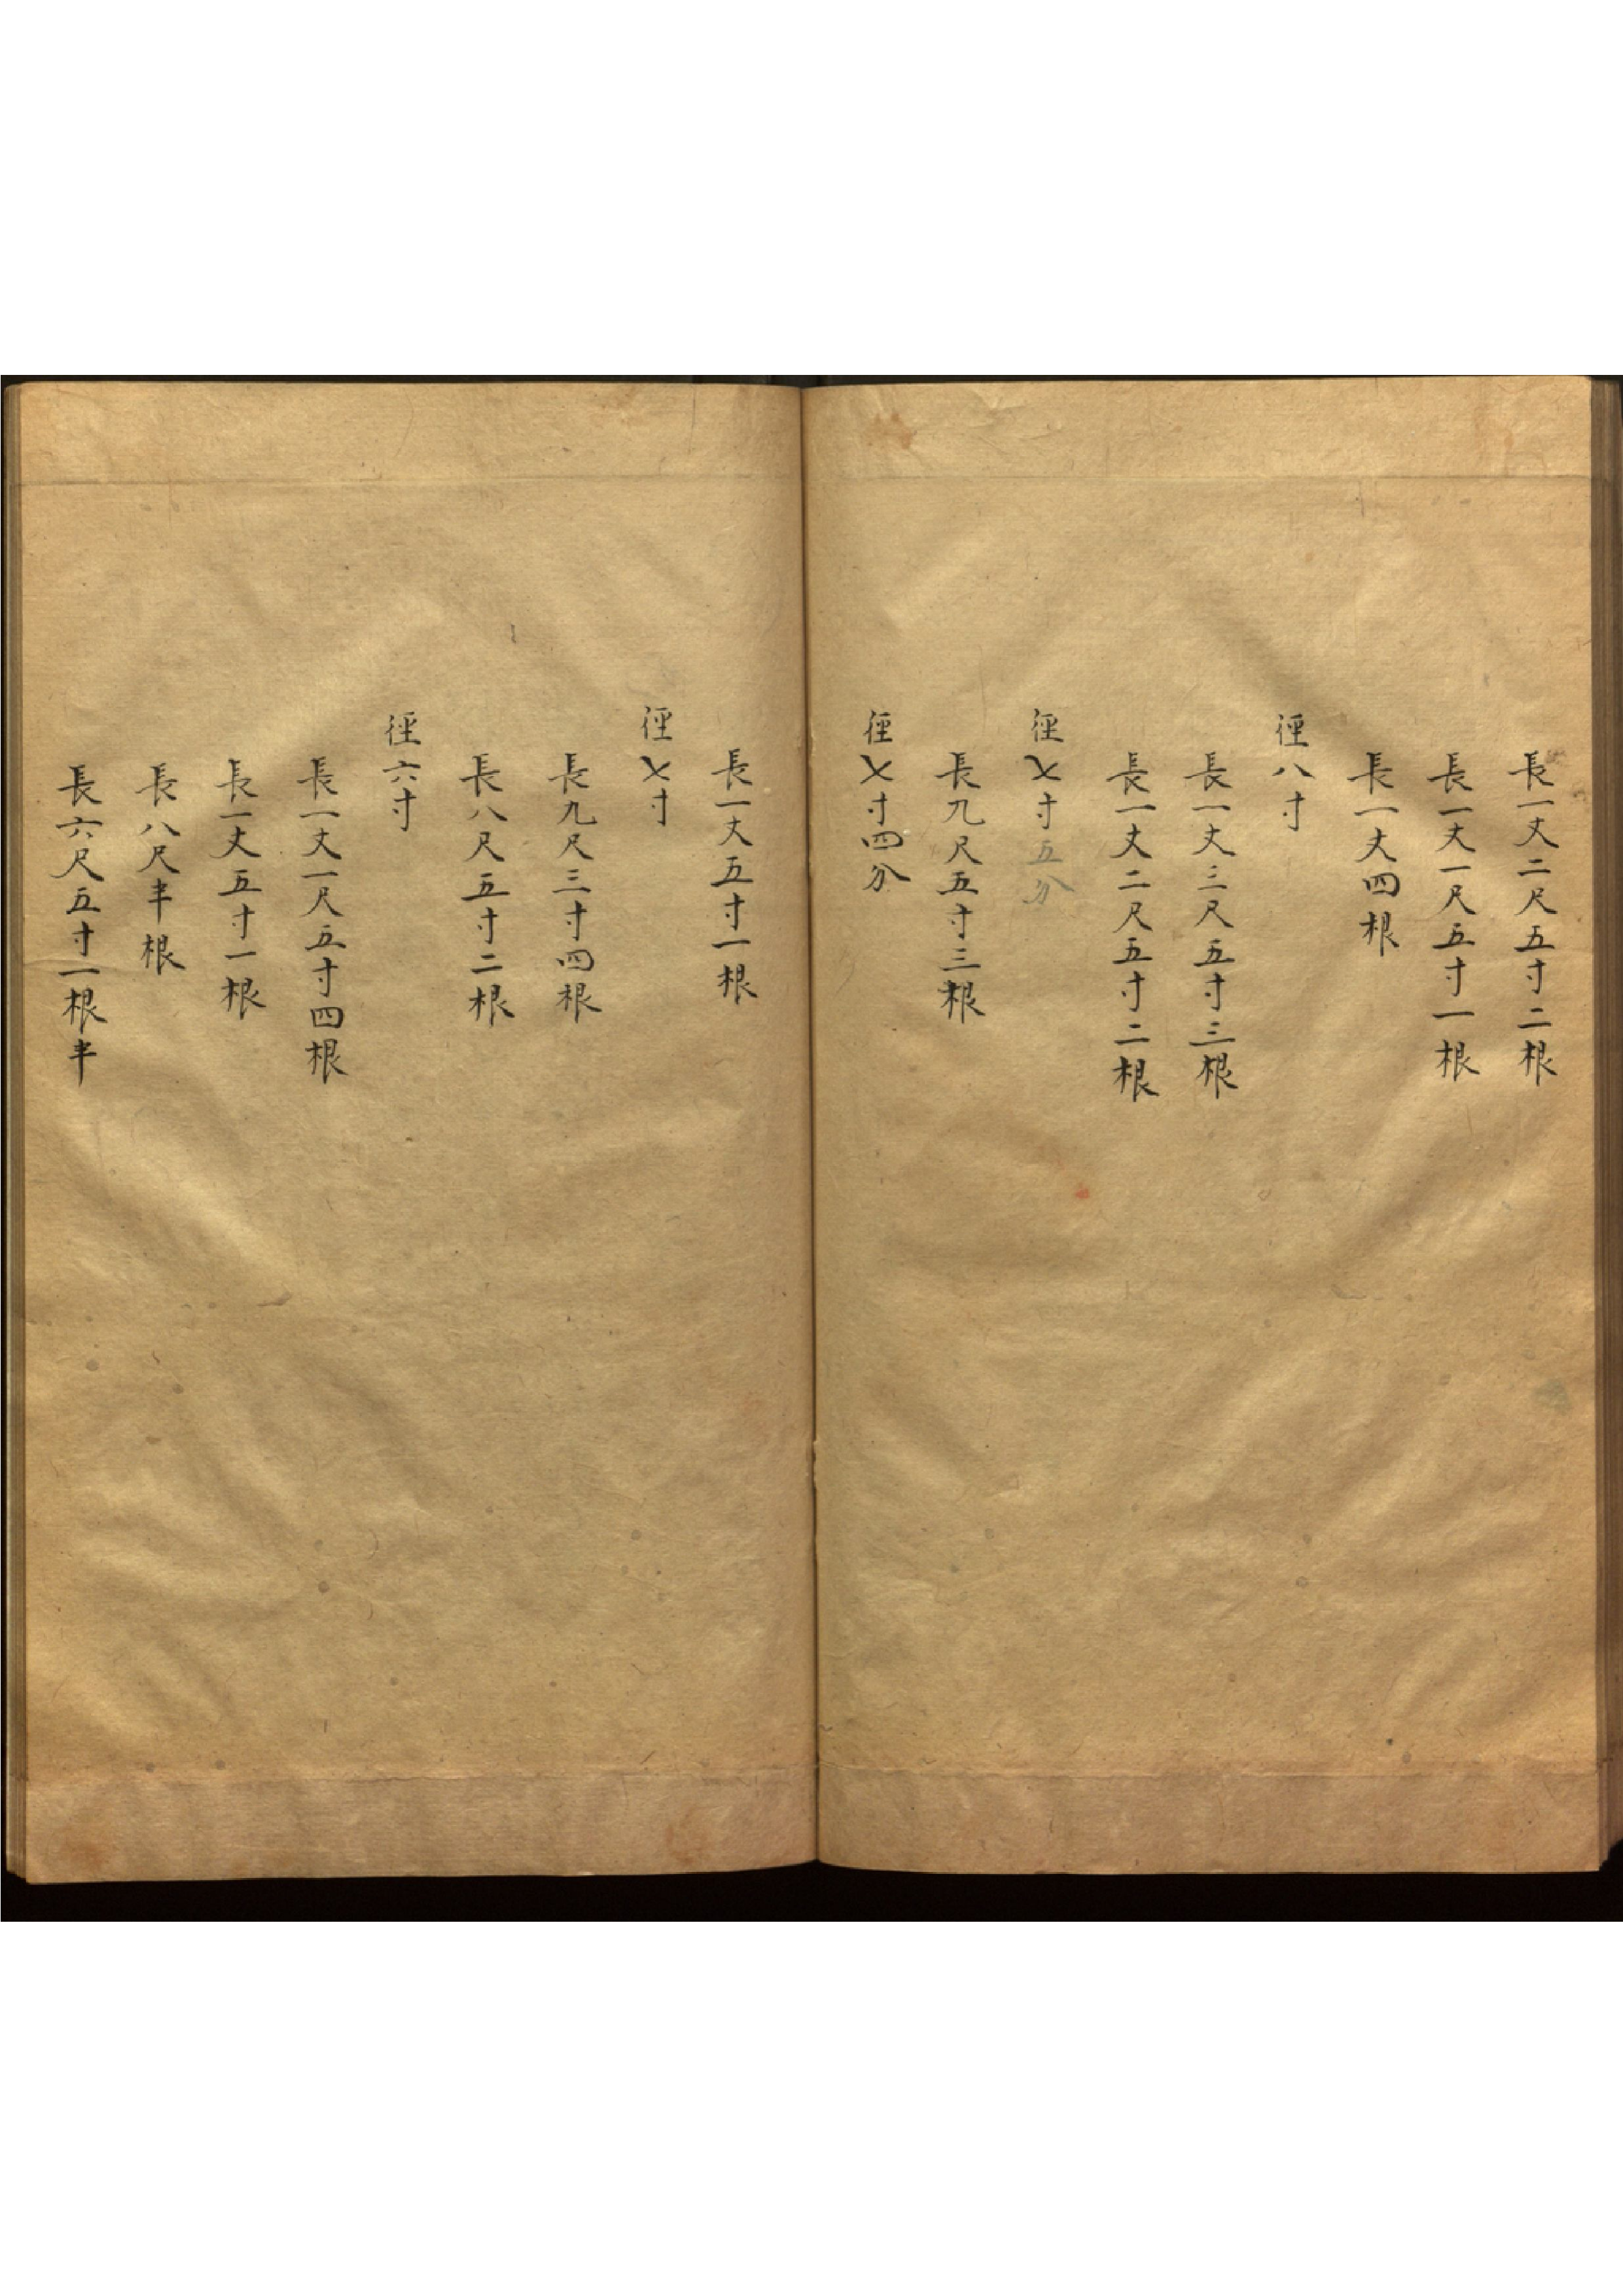 長一丈二尺五寸二根
長一丈一尺五寸一根
長一丈四根
徑八寸
長一丈三尺五寸三根
長一丈二尺五寸二根
徑七寸五分
長九尺五寸三根
徑七寸四分
長一丈五寸一根
徑七寸
長九尺三寸四根
長八尺五寸二根
徑六寸
長一丈一尺五寸四根
長一丈五寸一根
長八尺半根
長六尺五寸一根半